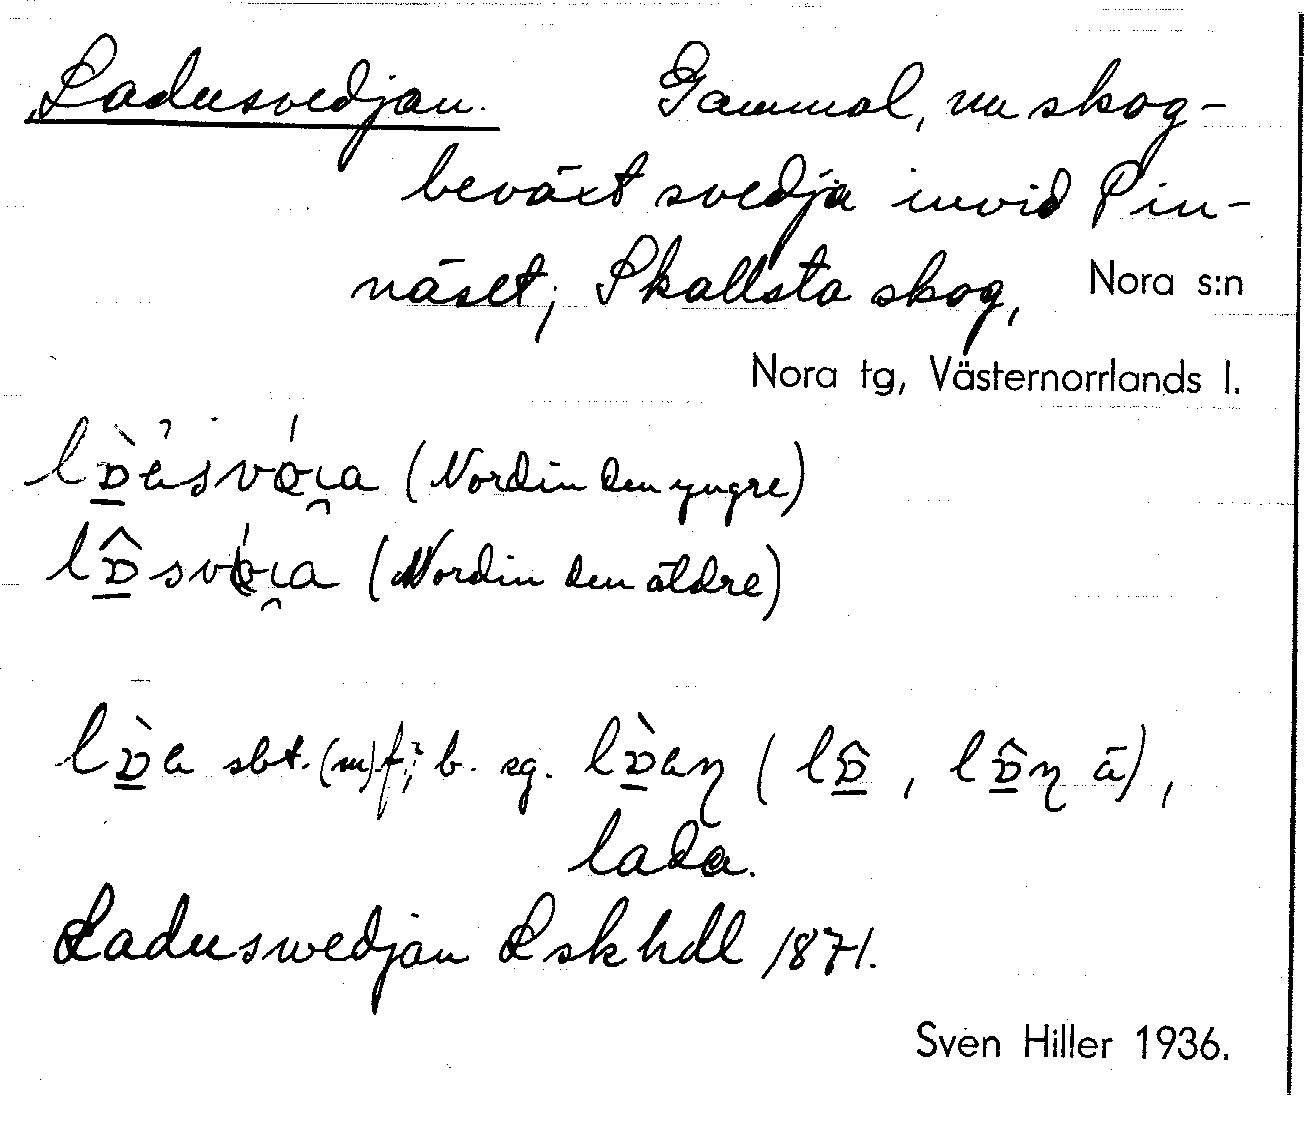 Ladusvedjan. Gammal, nu skog-
beväxt svedja invid Pin-
näset, Skallsta skog, Nora s:n
Nora tg, Västernorrlands l.
(Nordin den yngre)
(Nordin den äldre)
sbt. (m) f; b. sg.
lada.
Laduswedjan Lskhdl 1871.
Sven Hiller 1936.